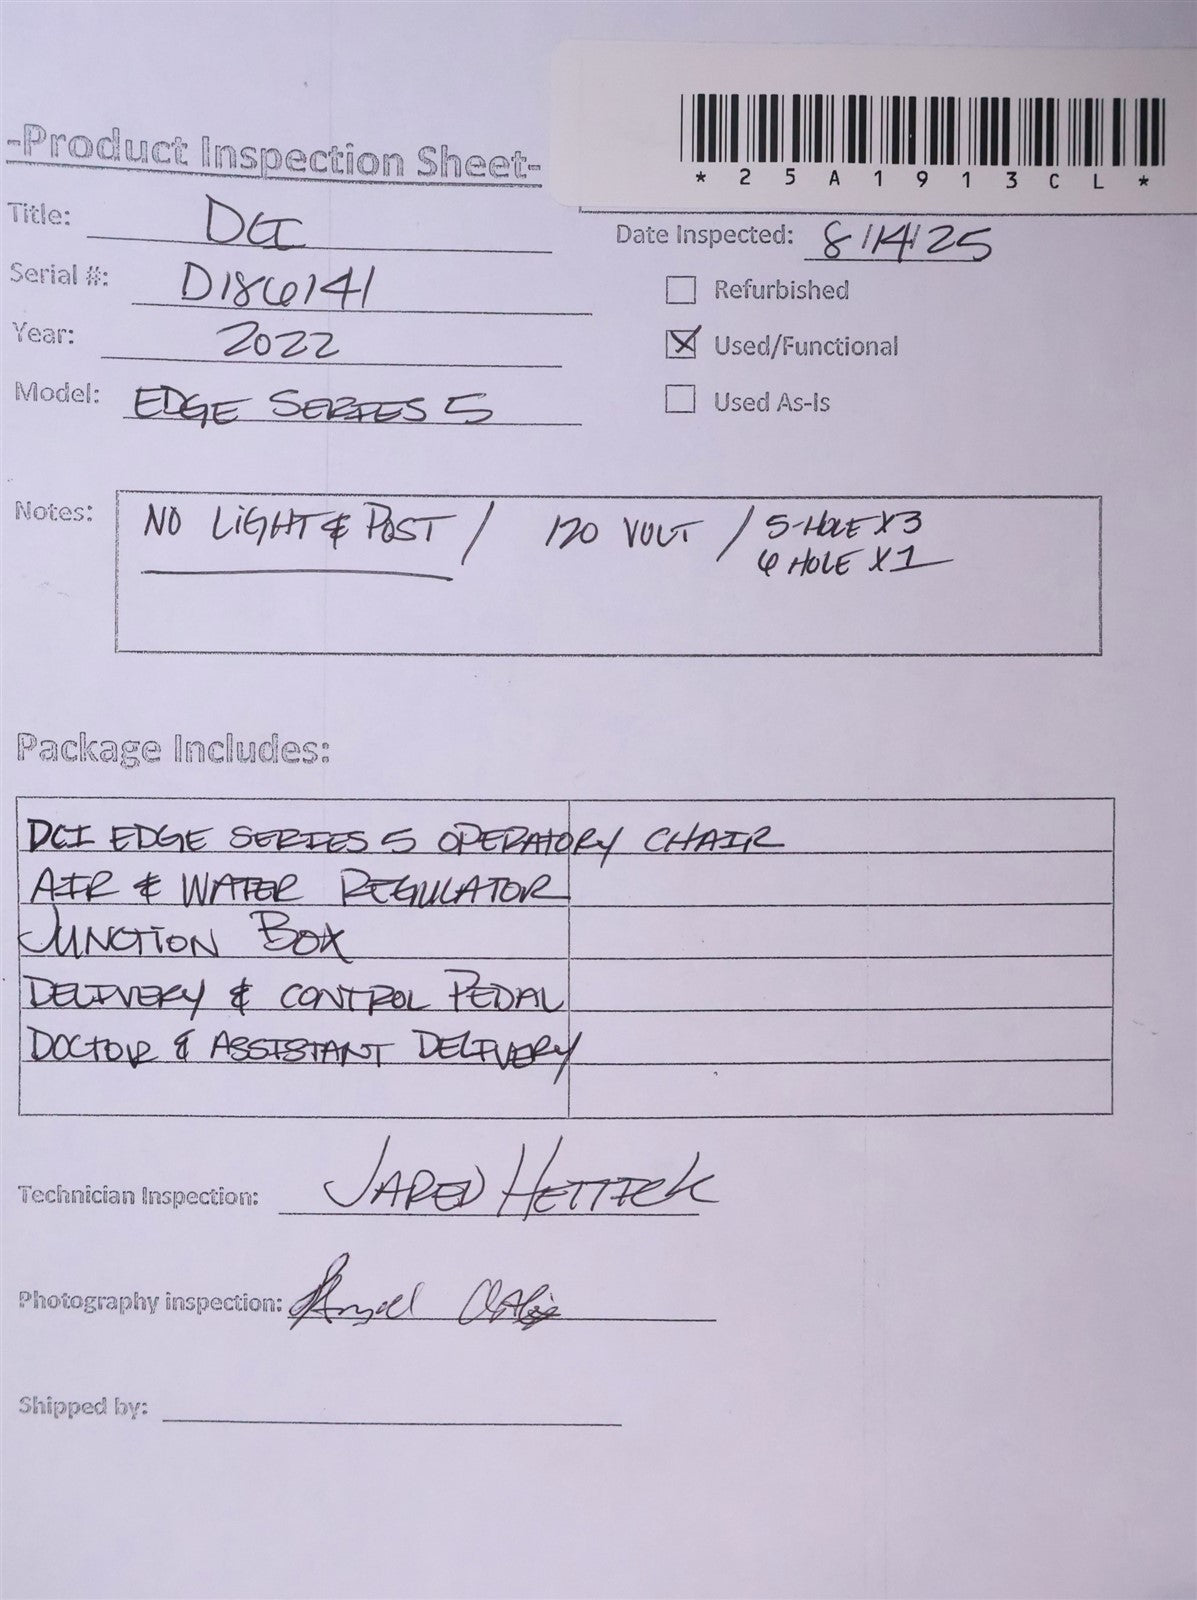 *25A1913CL*
-Product Inspection Sheet-
Title: DCI
Date Inspected: 8/14/25
Serial #: D186141
Refurbished
Year: 2022
Used/Functional
Model: EDGE SERIES 5
Used As-Is
Notes: NO LIGHT & POST / 120 VOLT / 5-HOLE X 3
6 HOLE X 1
Package Includes:
DCI EDGE SERIES 5 OPERATORY CHAIR
AIR & WATER REGULATOR
JUNCTION BOX
DELIVERY & CONTROL PEDAL
DOCTOR & ASSISTANT DELIVERY
Technician Inspection: JARED HETTICK
Photography inspection:
Shipped by: